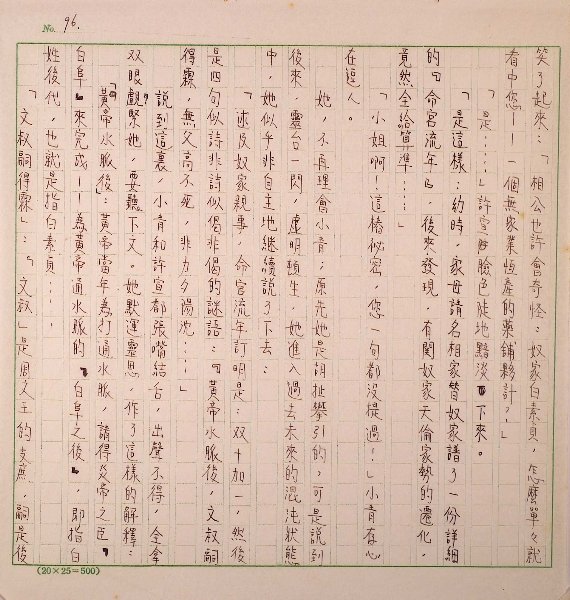 No. 96.
笑了起來:「相公也許會奇怪:奴家白素貞,怎麼單々就
看中您!——一個無家業恆產的藥鋪夥計?」
「是……」許宣臉色陡地黯淡下來。
「是這樣:幼時,家母請名相家替奴家譜了一份詳細
的『命宮流年』,後來發現,有関奴家天倫家勢的遷化,
竟然全給算準……」
「小姐啊!這樁秘密,您一句都没提過!」小青存心
在逗人。
她,不再理會小青:原先她是胡扯攀引的,可是說到
後來,靈台一閃,虛明頓生,她進入過去未來的混沌狀態
中,她似乎非自主地繼續說了下去:
「述及奴家親事,命宮流年訂明是:双十加一,然後
是四句似詩非詩似偈非偈的謎語:『黃帝水脈後,文叔嗣
得霖,無父高不死,非力夕陽沈…」
說到這裏,小青和許宣都張嘴結舌,出聲不得,全拿
双眼觀緊她,要聽下文。她默運靈思,作了這樣的解釋:
「『黃帝水脈後:黃帝當年為打通水脈,請得炎帝之臣『
白阜』來完成——為黃帝通水脈的『白阜之後』,即指白
姓後代,也就是指白素貞……
「文叔嗣得霖」:「文叔」是周文王的支庶,嗣是後
(20×25=500)